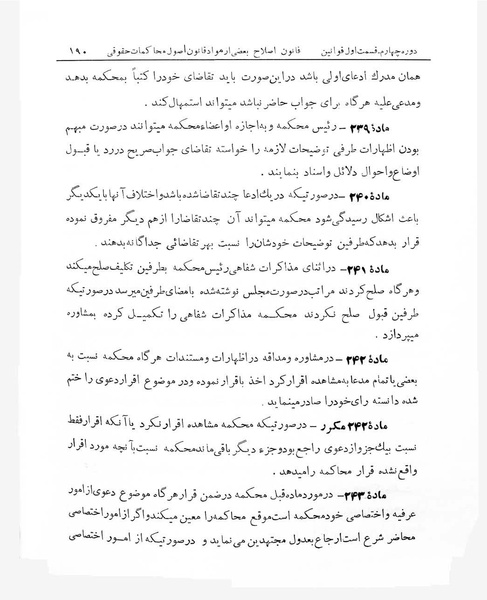 دوره چهارم، قسمت اول قوانین قانون اصلاح بعضی از مواد قانون اصول محاکمات حقوقی ۱۹۰
همان مدرک ادعای اولی باشد در این صورت باید تقاضای خود را کتباً بمحکمه بدهد
ومدعی علیه هرگاه برای جواب حاضر نباشد میتواند استمهال کند .
مادهٔ ۲۳۹ – رئیس محکمه و به اجازه او اعضاء محکمه میتوانند درصورت مبهم
بودن اظهارات طرفی توضیحات لازمه را خواسته تقاضای جواب صریح در رد یا قبول
اوضاع واحوال دلائل واسناد بنمایند .
مادهٔ ۲۴۰ – درصورتیکه در یک ادعا چند تقاضا شده باشد واختلاف آنها با یکدیگر
باعث اشکال رسیدگی شود محکمه میتواند آن چند تقاضا را از هم دیگر مفروق نموده
قرار بدهد که طرفین توضیحات خودشان را نسبت بهر تقاضائی جداگانه بدهند .
مادهٔ ۲۴۱ – در اثنای مذاکرات شفاهی رئیس محکمه بطرفین تکلیف صلح میکند
وهرگاه صلح کردند مراتب در صورت مجلس نوشته شده بامضای طرفین میرسد درصورتیکه
طرفین قبول صلح نکردند محکمه مذاکرات شفاهی را تکمیل کرده بمشاوره
میپردازد .
مادهٔ ۲۴۲ – در مشاوره ومداقه در اظهارات و مستندات هرگاه محکمه نسبت به
بعضی یا تمام مدعا به مشاهده اقرار کرد اخذ باقرار نموده ودر موضوع اقرار دعوی را ختم
شده دانسته رای خود را صادر مینماید .
مادهٔ ۲۴۲ مکرر – درصورتیکه محکمه مشاهده اقرار نکرد یا آنکه اقرار فقط
نسبت بیک جزو از دعوی راجع بود و جزء دیگر باقی ماند محکمه نسبت بآنچه مورد اقرار
واقع نشده قرار محاکمه را میدهد .
مادهٔ ۲۴۳ – در مورد ماده قبل محکمه در ضمن قرار هرگاه موضوع دعوی از امور
عرفیه واختصاصی خود محکمه است موقع محاکمه را معین میکند واگر از امور اختصاصی
محاضر شرع است ارجاع بعدول مجتهدین می نماید و درصورتیکه از امور اختصاصی